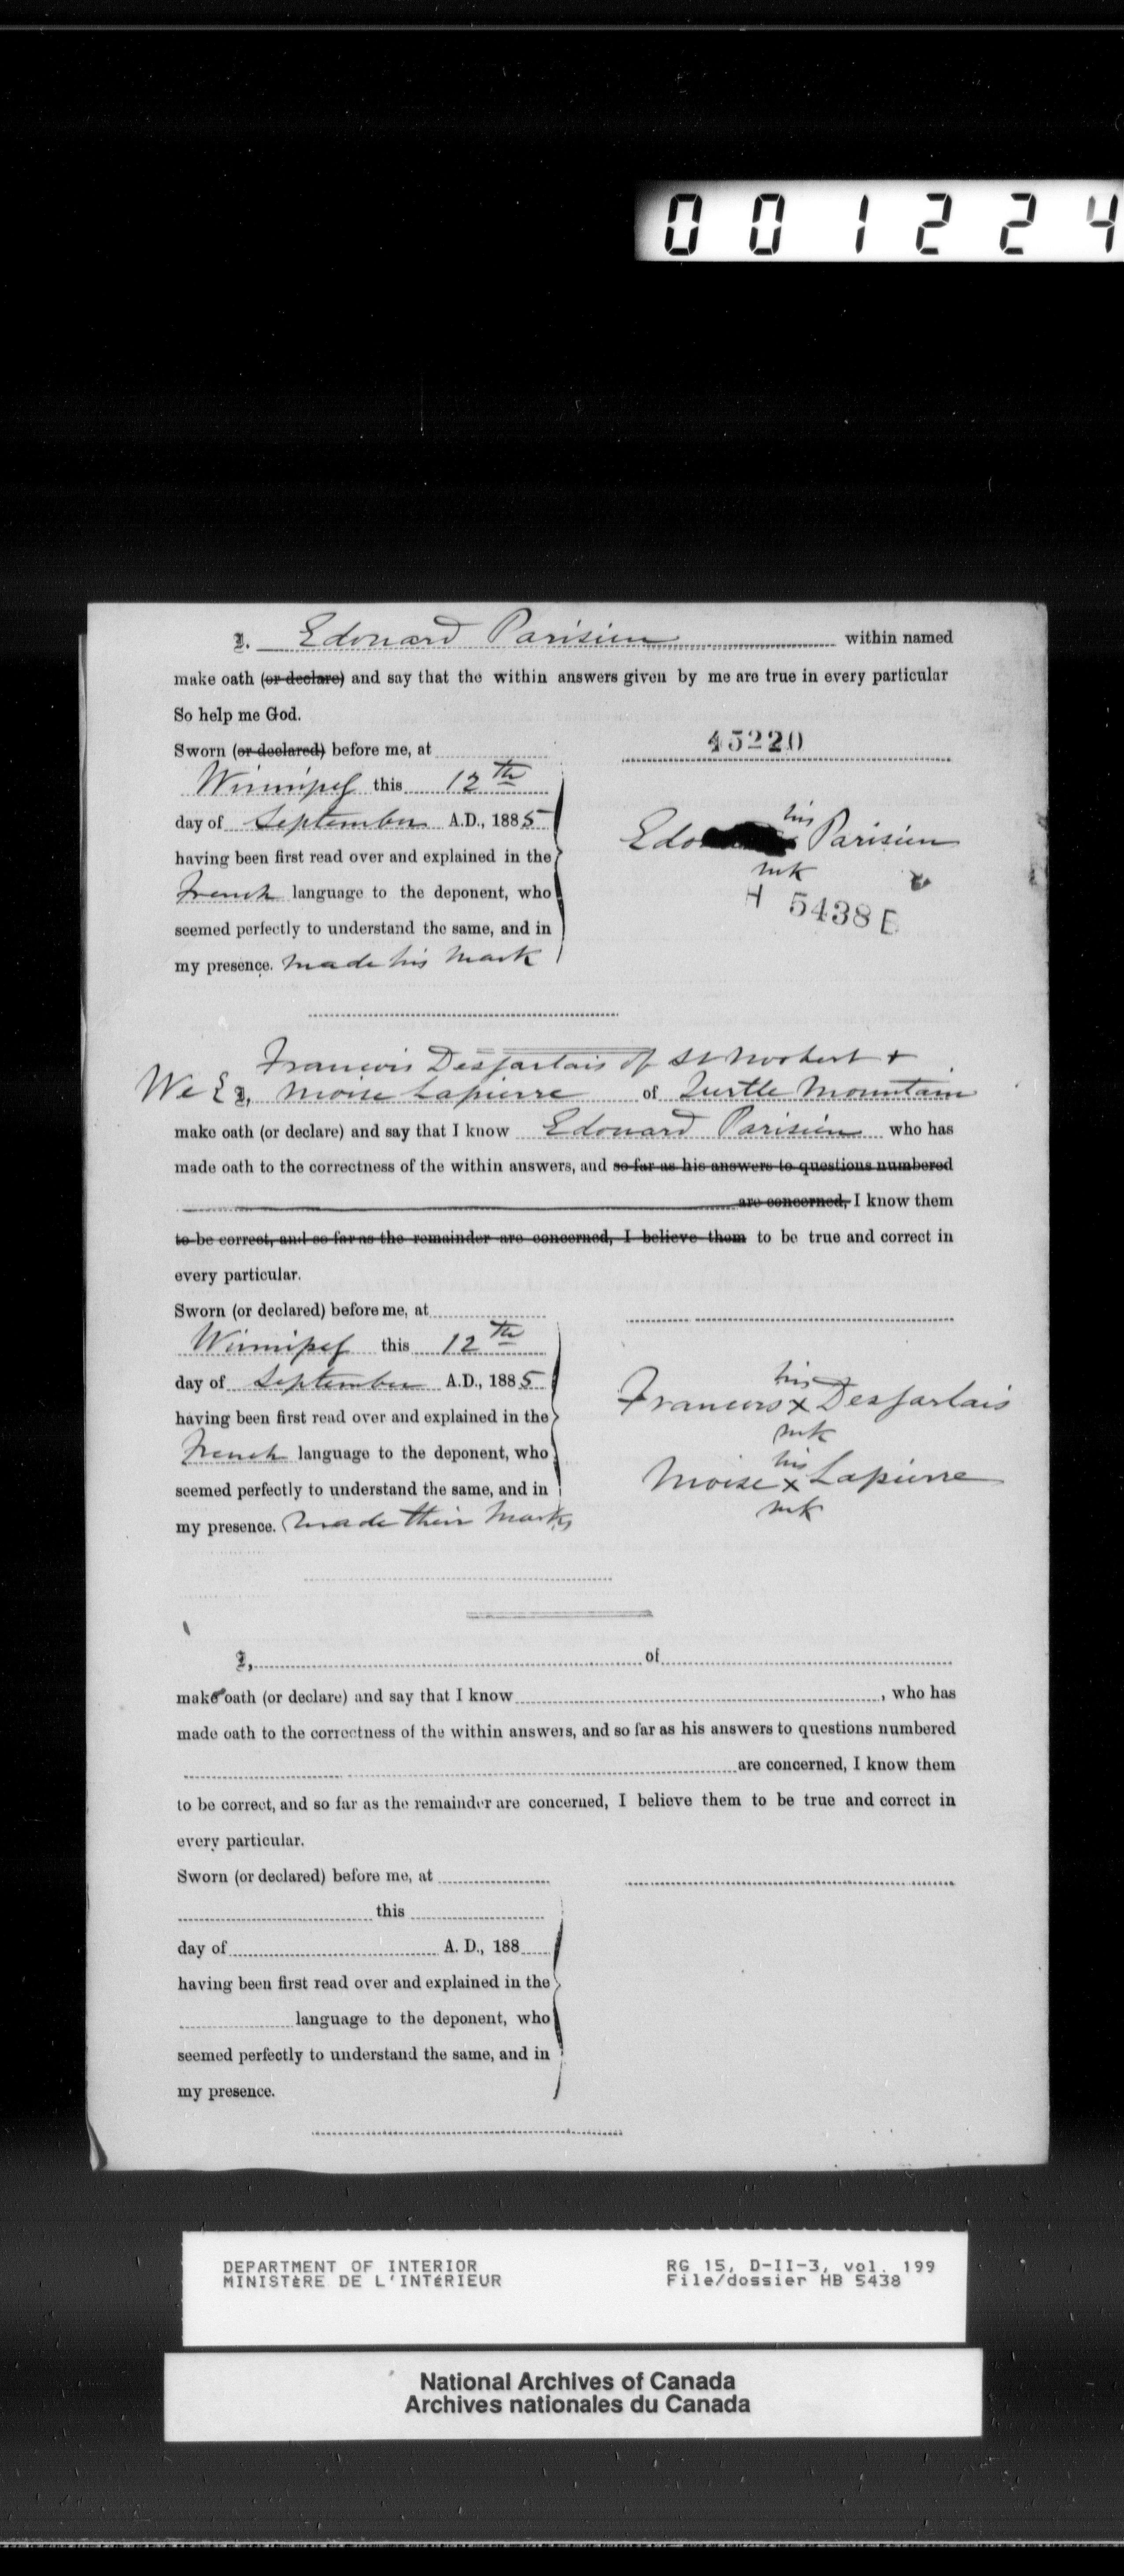 001224
I, Edouard Parisien within named
make oath (or declare) and say that the within answers given by me are true in every particular
So help me God.
Sworn (or declared) before me, at
45220
Winnipeg this 12th
day of September A.D., 1885
his
Edo Parisien
mk
having been first read over and explained in the
French language to the deponent, who
H 5438 E
seemed perfectly to understand the same, and in
my presence. made his mark
Francois Desjarlais of St Norbert +
We { I, Moise Lapierre of Turtle Mountain
make oath (or declare) and say that I know Edouard Parisien who has
made oath to the correctness of the within answers, and so far as his answers to questions numbered
are concerned, I know them
to be correct, and so far as the remainder are concerned, I believe them to be true and correct in
every particular.
Sworn (or declared) before me, at
Winnipeg this 12th
day of September A.D., 1885
his
Francois x Desjarlais
mk
having been first read over and explained in the
French language to the deponent, who
his
Moise x Lapierre
mk
seemed perfectly to understand the same, and in
my presence. made their marks
I, of
make oath (or declare) and say that I know , who has
made oath to the correctness of the within answers, and so far as his answers to questions numbered
are concerned, I know them
to be correct, and so far as the remainder are concerned, I believe them to be true and correct in
every particular.
Sworn (or declared) before me, at
this
day of A. D., 188
having been first read over and explained in the
language to the deponent, who
seemed perfectly to understand the same, and in
my presence.
DEPARTMENT OF INTERIOR
MINISTÈRE DE L'INTÉRIEUR
RG 15, D-II-3, vol. 199
File/dossier HB 5438
National Archives of Canada
Archives nationales du Canada